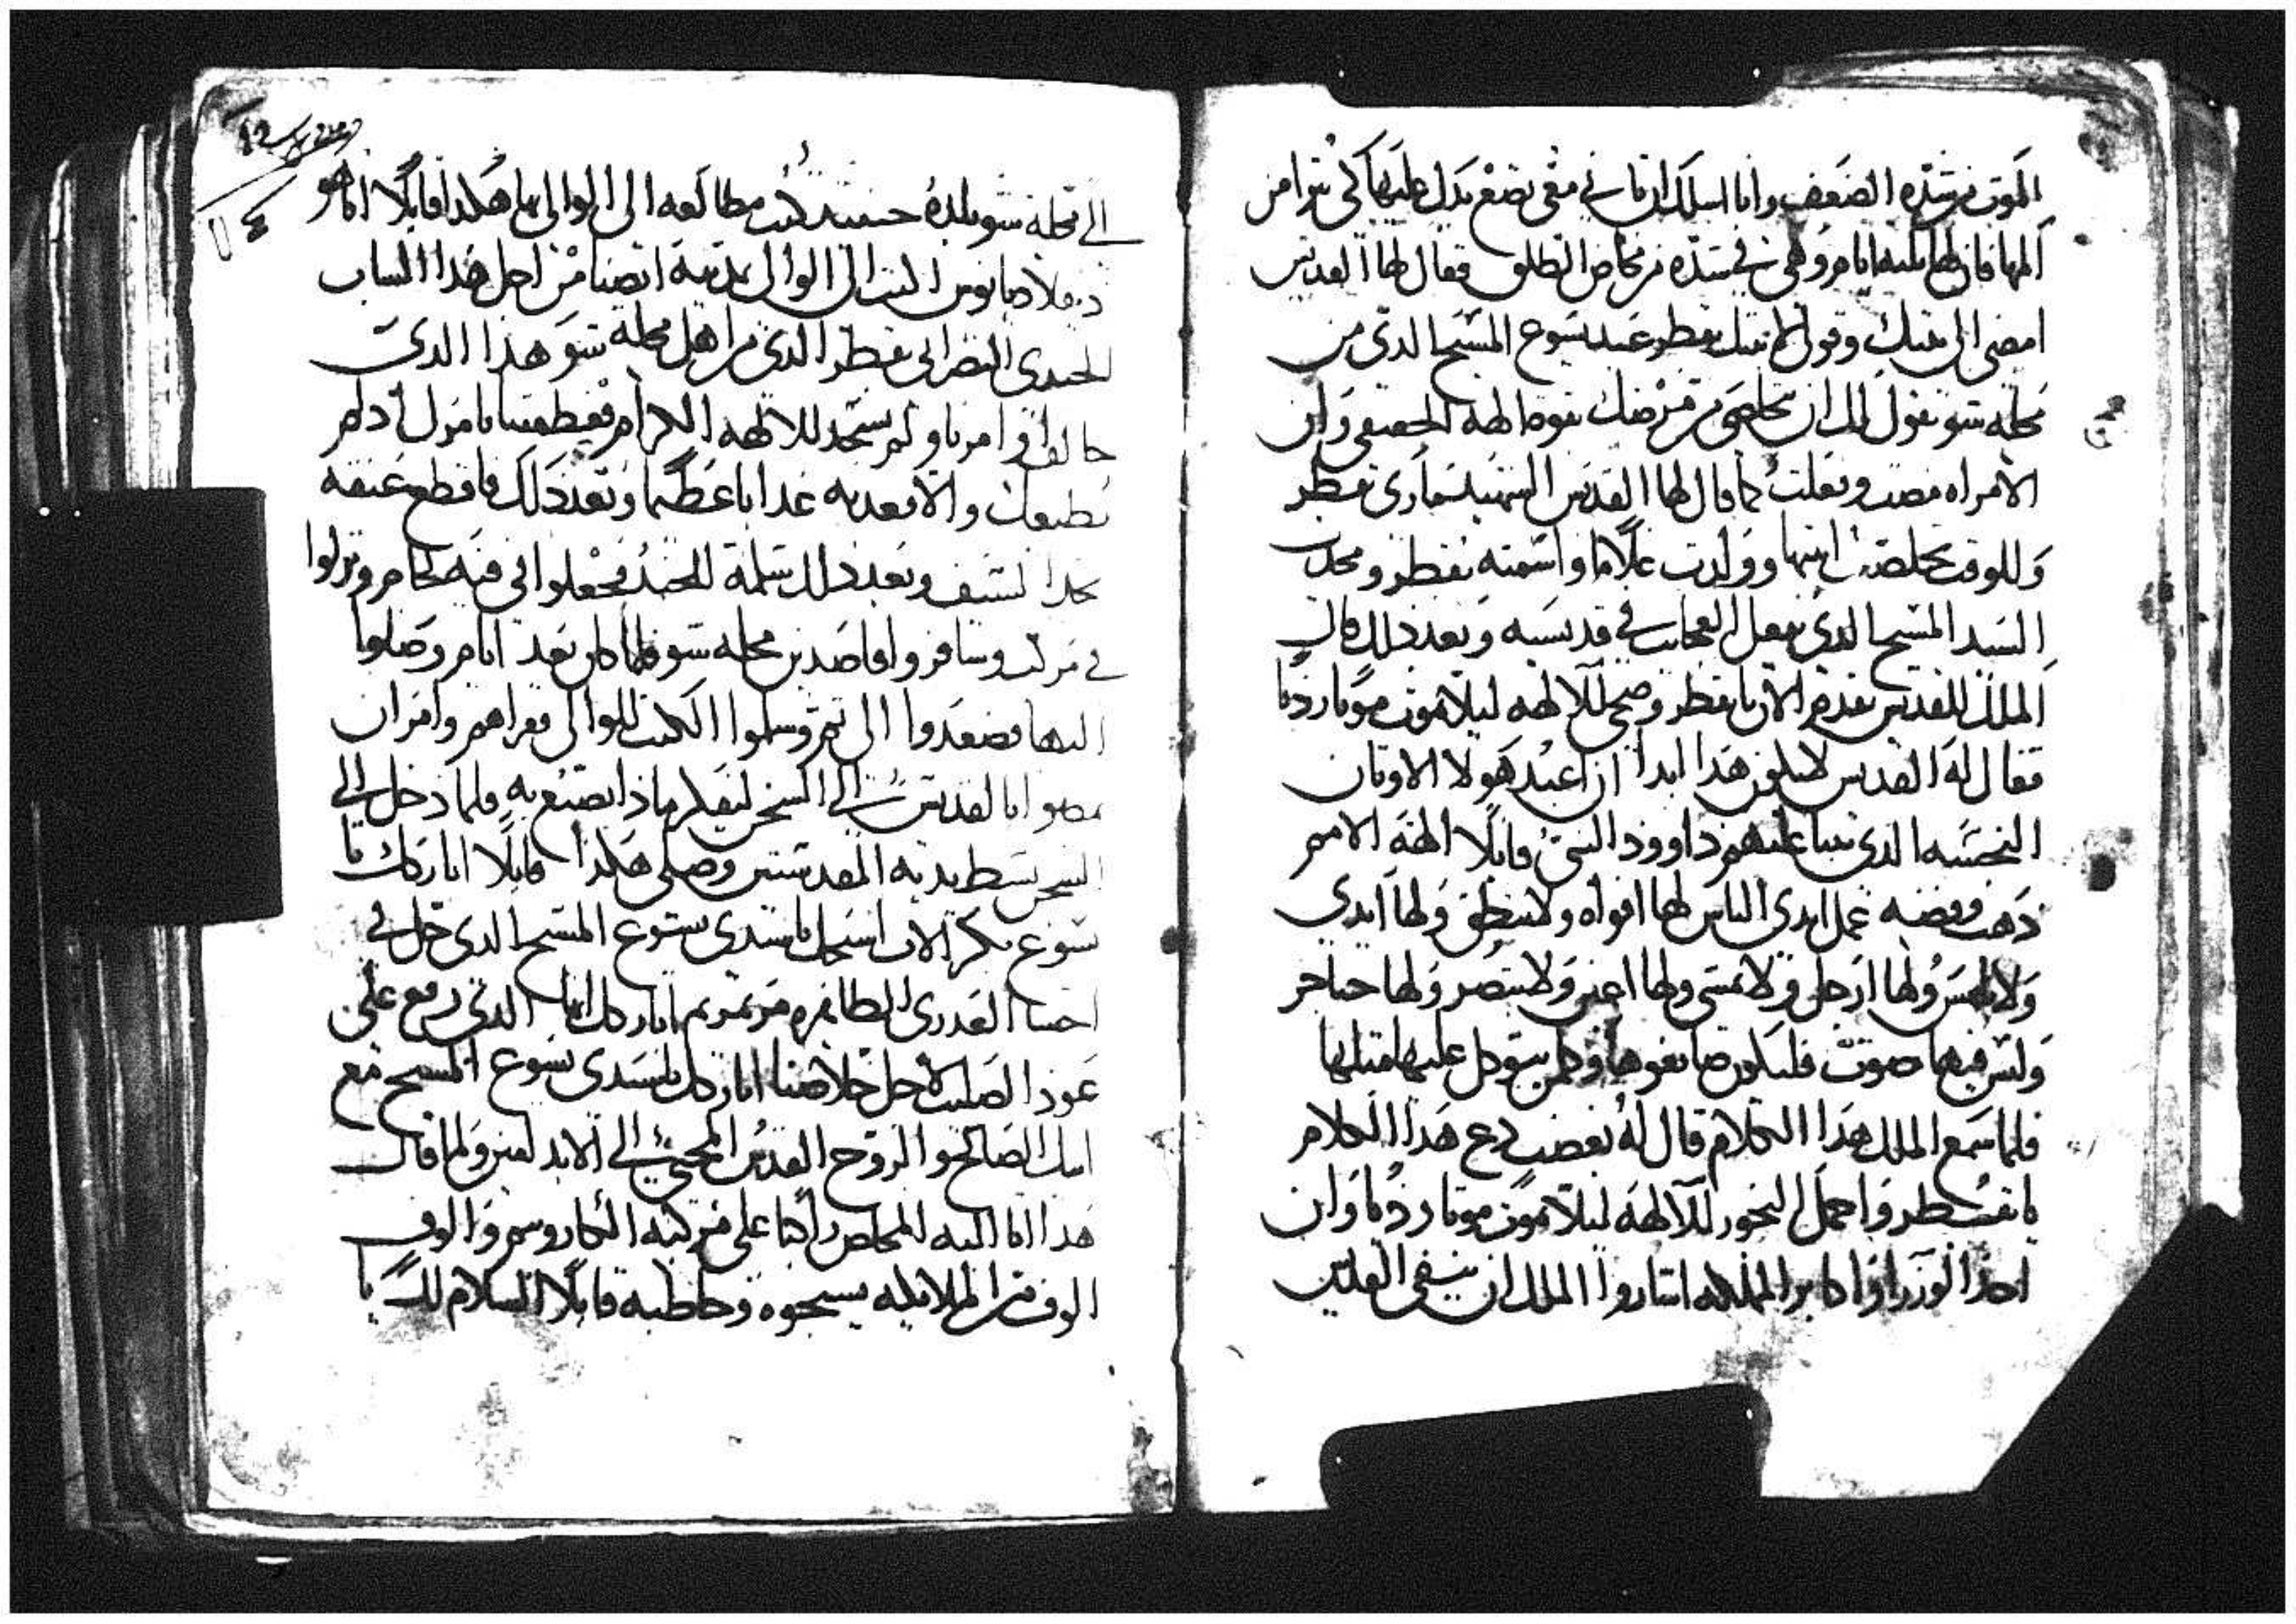 الموت من شده الضعف وانا اسلك ان تاتي معي تضع يدك عليها كي تبرا من
المها فان لها تلته ايام وهي في شده من مخاض الطلق فقال لها القديس
امضي الى بيتك وقولي لابنتك بقطر عبد يسوع المسيح الدي من
محله شو يقول لك ان تخلصي من مرضك بقوة الهه الحقيقي وان
الامراه مضت وفعلت كما قال لها القديس الشهيد ماري بقطر
وللوقت تخلصت ابنتها وولدت غلاما واسمته بقطر ومجدت
السيد المسيح الدي يفعل العجايب في قديسيه وبعد دلك قال
الملك للقديس تقدم الان يا بقطر وضحي للالهه ليلا تموت موتا رديا
فقال له القديس لا يكون هدا ابدا ان اعبد هولا الاوتان
النجسه الدي تنبا عليهم داوود النبي قايلا الهة الامم
دهب وفضه عمل ايدي الناس لها افواه ولا تنطق ولها ايدي
ولا تلمس ولها ارجل ولا تمشي ولها اعين ولا تبصر ولها حناجر
وليس فيها صوت فليكون صانعوها وكلمن يتوكل عليها مثلها
فلما سمع الملك هدا الكلام قال له بغضب دع هدا الكلام
يا بقطر واحمل البخور للالهة ليلا تموت موتا رديا وان
احد الوزرا واكابر المملكه اشاروا الملك ان ينفي القديس
١٤
الى محله شو بلده حينيد كتب مطالعه الى الوالي بها هكدا قايلا انا هو
دقلاديانوس اكتب الى الوالي بمدينة انصنا من اجل هدا الشاب
الجندي النصراني بقطر الدي من اهل محلة شو هدا الدي
خالف اوامرنا ولم يسجد للالهه الكرام
يطيعك والا فعدبه عدابا عظيما وبعد دلك فاقطع عنقه
بحد السيف وبعد دلك سلمه للجند فجعلوا في فيه لجام ونزلوا
في مركب وسافروا قاصدين محله شو فلما كان بعد ايام وصلوا
اليها فصعدوا الى تم وسلموا الكتب للوالي فقراهم وامر ان
يمضوا بالقديس الى السجن ليفكر ماذا يصنع به فلما دخل الى
السجن بسط يديه المقدستين وصلى هكدا قايلا اباركك يا
يسوع بكر الاب اسبحك يا سيدي يسوع المسيح الدي حل في
احشا العدري الطاهره مرتمريم اباركك ايها الدي رفع على
عود الصليب لاجل خلاصنا اباركك يا سيدي يسوع المسيح مع
ابيك الصالح والروح القدس المحيي الى الابد امين ولما قال
هدا اتا اليه المخلص راكبا على مركبة الكاروبيم والوف
الوف من الملايكه يسبحوه وخاطبه قايلا السلام لك يا